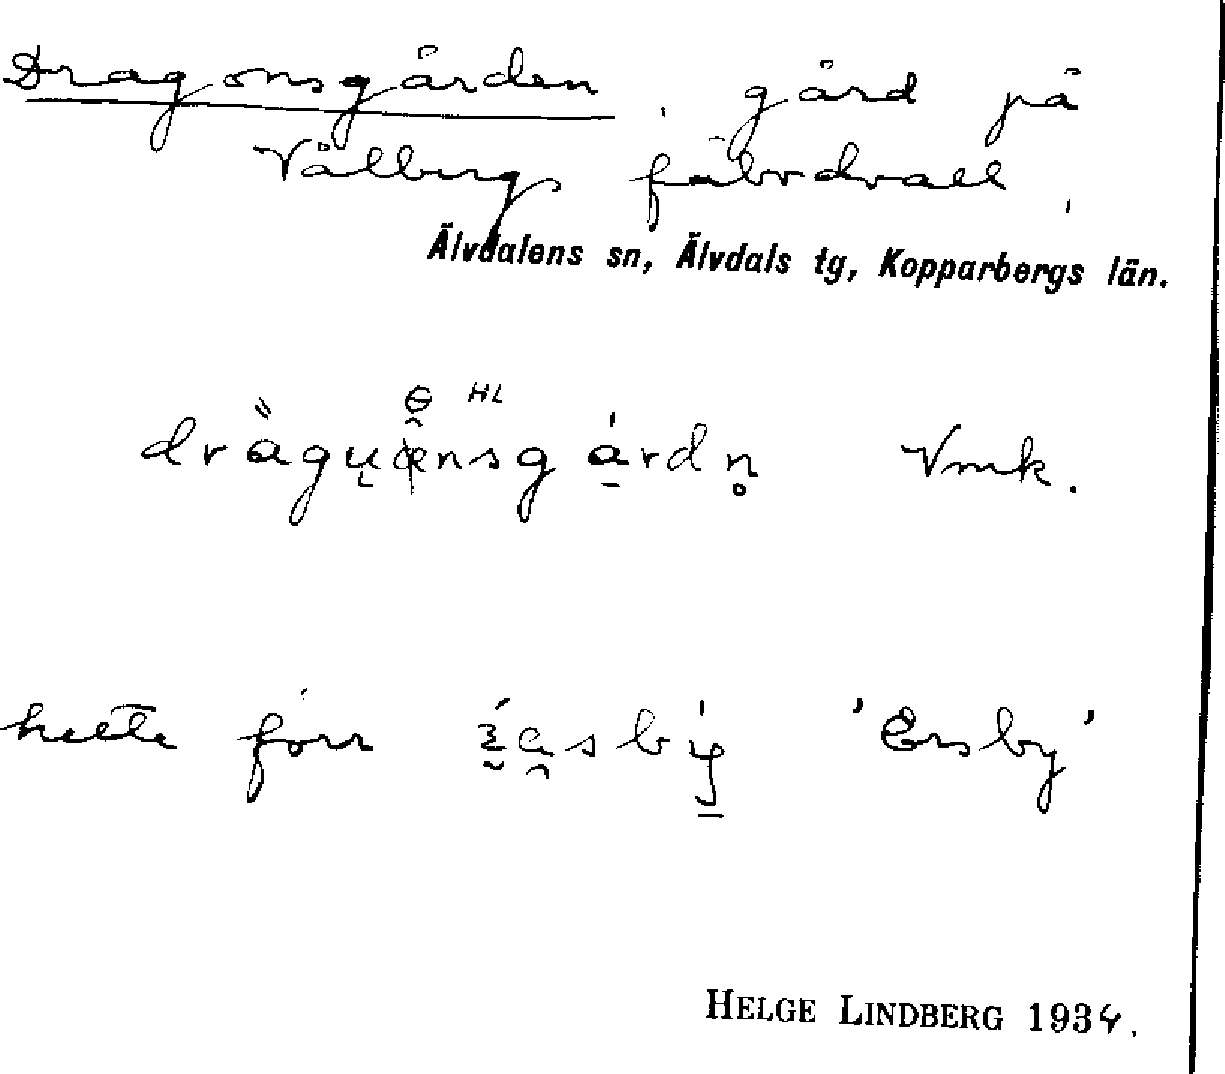 Dragonsgården, gård på
Vålberg fäbodvall,
Älvdalens sn, Älvdals tg, Kopparbergs län.
HL
Vmk.
hette förr 'Ersby'
HELGE LINDBERG 1934.